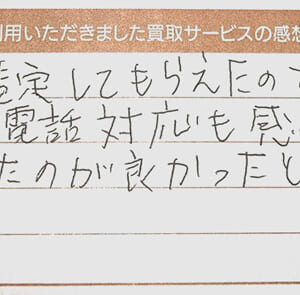 利用いただきました買取サービスの感想
鑑定してもらえたので
電話対応も感
たのが良かったと